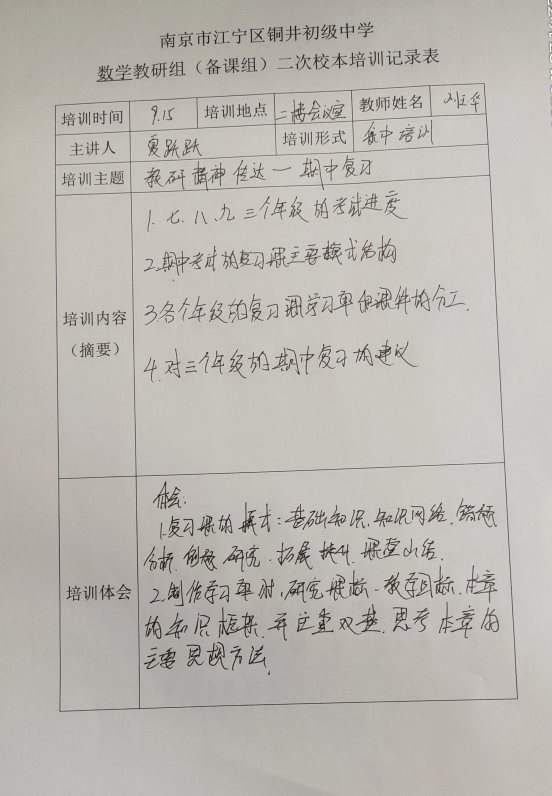 南京市江宁区铜井初级中学
数学教研组（备课组）二次校本培训记录表
培训时间 9.15 培训地点 二楼会议室 教师姓名
主讲人 夏跃跃 培训形式 集中培训
培训主题 教研精神传达一期中复习
1.七、八、九三个年级的考试进度
2.期中考试的复习课主要模式结构
培训内容
（摘要）
3.各个年级的复习课学习单和课件的分工.
4.对三个年级的期中复习的建议
体会:
1.复习课的模式:基础知识.知识网络.错题
分析.例题研究.拓展提升.课堂小结.
培训体会
2.制作学习单时,研究课标、教学目标.本章
的知识框架.并注重双基.思考本章的
主要思想方法.